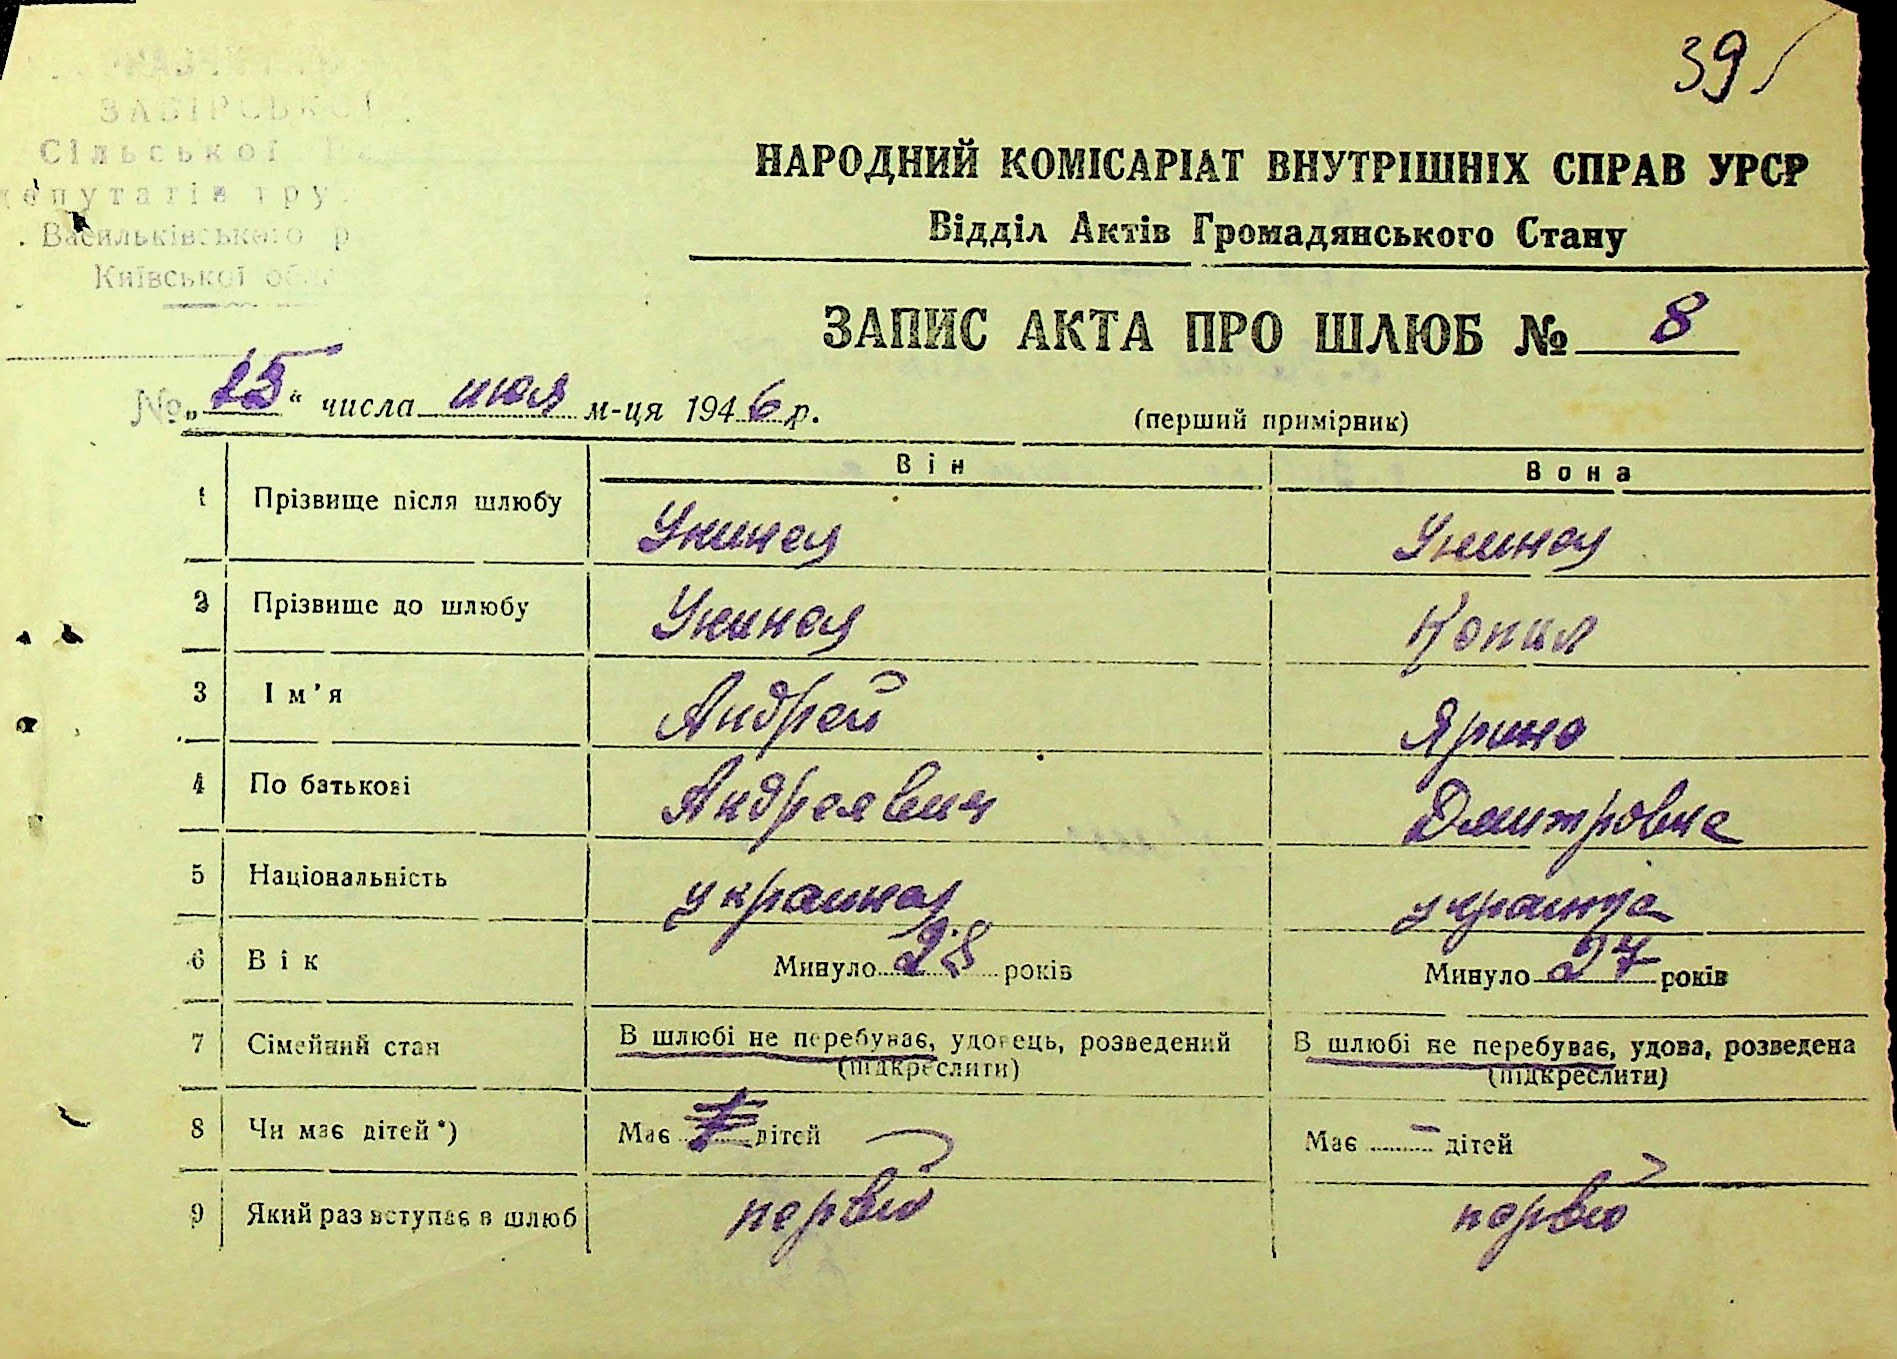 39
ЗАБІРСЬКОЇ
Сільської
депутатів тру
Васильківського р
Київської обл
НАРОДНИЙ КОМІСАРІАТ ВНУТРІШНІХ СПРАВ УРСР
Відділ Актів Громадянського Стану
ЗАПИС АКТА ПРО ШЛЮБ № 8
№ „15“ числа июля м-ця 1946 р.
(перший примірник)
Він Вона
1 Прізвище після шлюбу
2 Прізвище до шлюбу Копил
3 Ім'я Андрей Ярина
4 По батькові Андреевич Дмитровна
5 Національність украинец украинка
6 Вік Минуло 28 років Минуло 27 років
7 Сімейний стан В шлюбі не перебуває, удовець, розведений В шлюбі не перебуває, удова, розведена
(підкреслити) (підкреслити)
8 Чи має дітей*) Має дітей Має – дітей
9 Який раз вступає в шлюб первый первый